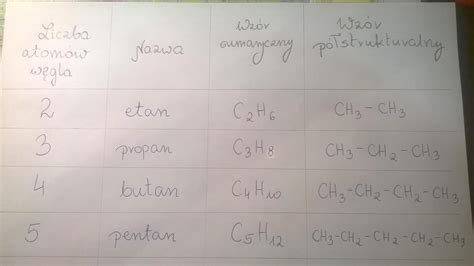 Liczba atomów węgla	Nazwa	Wzór sumaryczny	Wzór półstrukturalny
2	etan	C₂H₆	CH₃-CH₃
3	propan	C₃H₈	CH₃-CH₂-CH₃
4	butan	C₄H₁₀	CH₃-CH₂-CH₂-CH₃
5	pentan	C₅H₁₂	CH₃-CH₂-CH₂-CH₂-CH₃